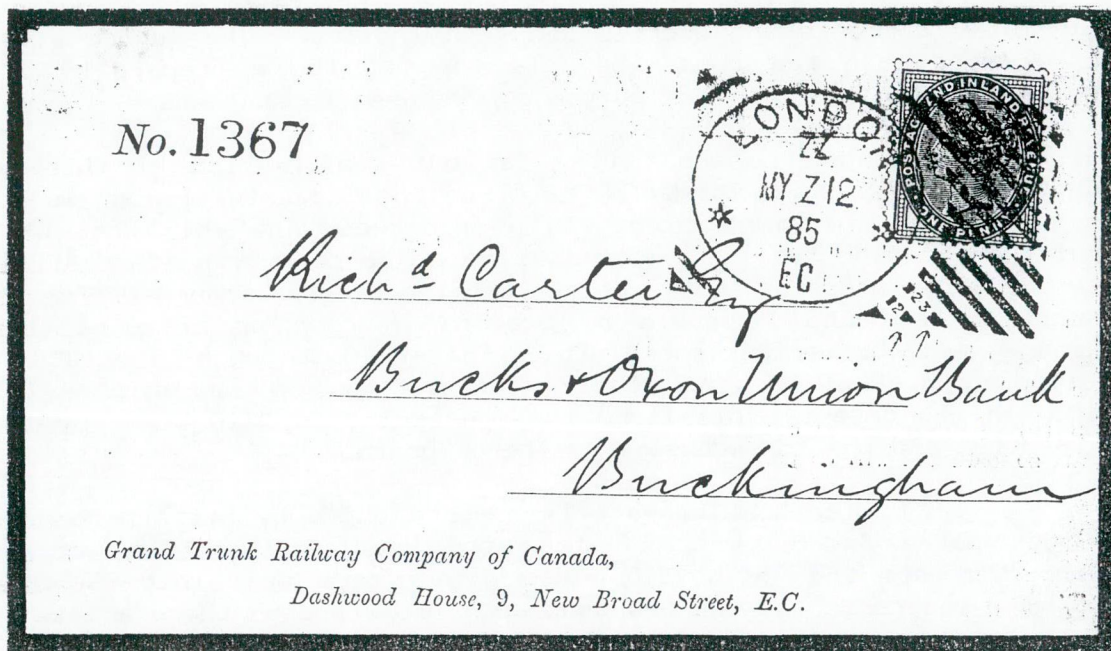 No. 1367
LONDON
ZZ
MY Z 12
85
EC
POSTAGE AND INLAND REVENUE
ONE PENNY
123
12
Richd Carter Esq
Bucks & Oxon Union Bank
Buckingham
Grand Trunk Railway Company of Canada,
Dashwood House, 9, New Broad Street, E.C.